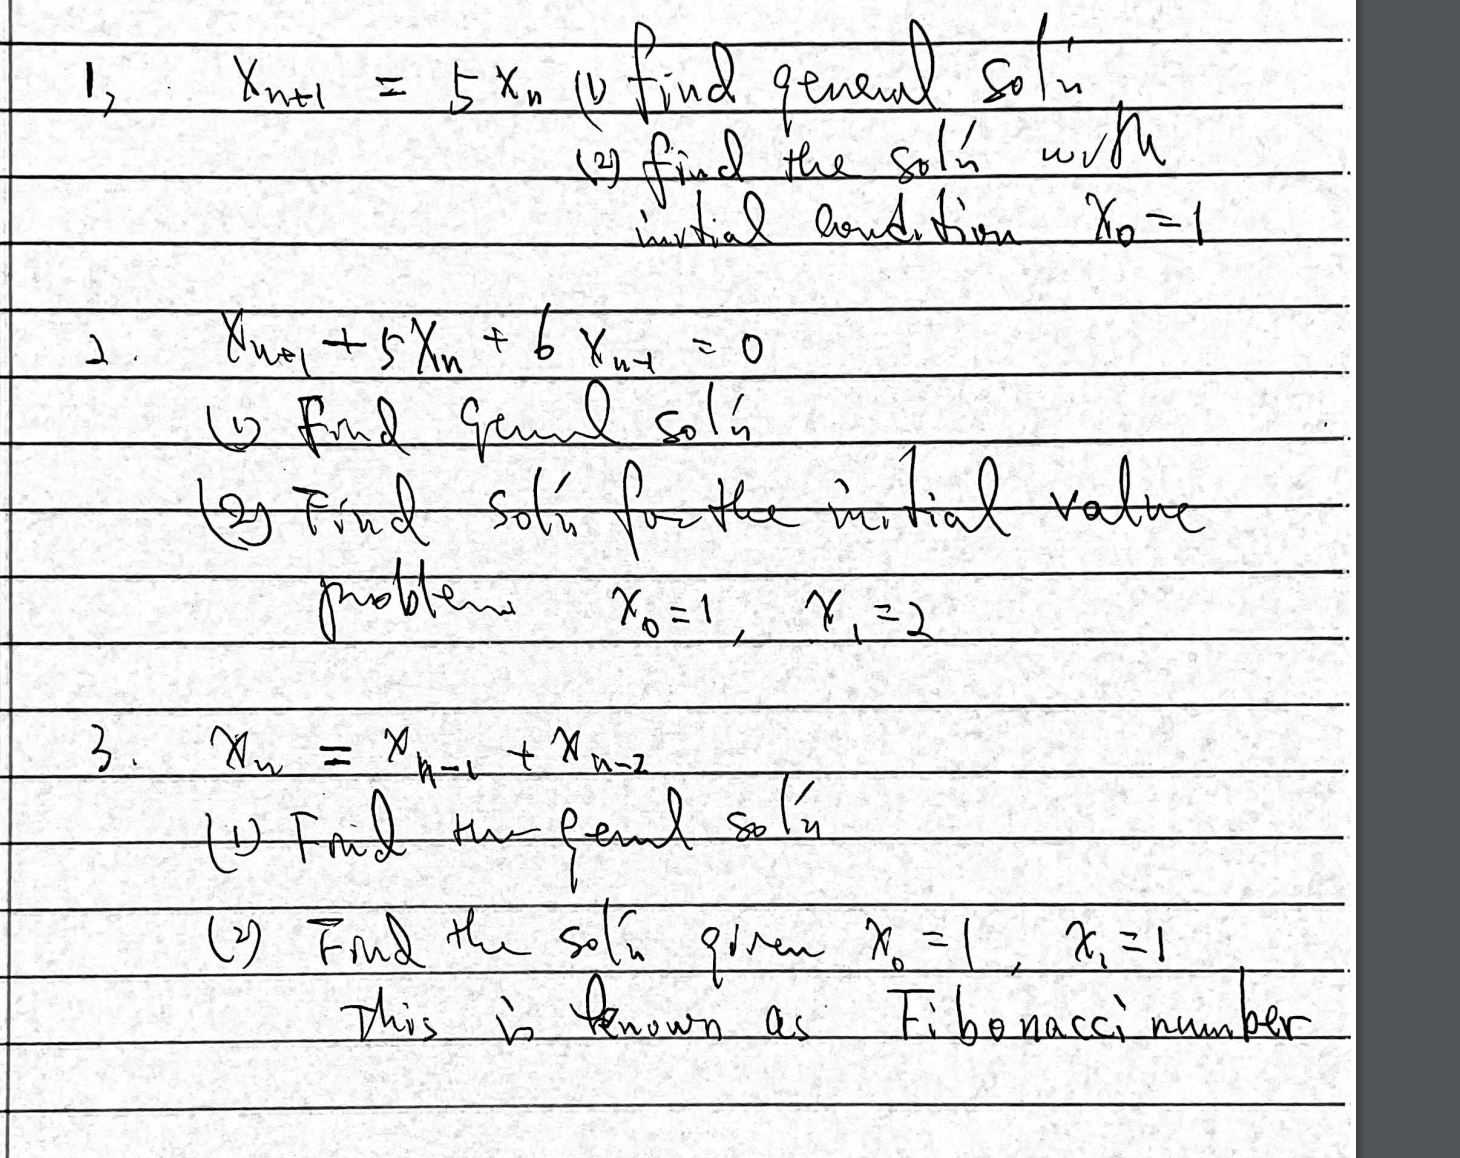 1, Xn+1 = 5Xn (1) find general sol'n
(2) find the sol'n with
initial condition X0=1
2. Xn+1 + 5Xn + 6Xn-1 = 0
(1) Find general sol'n
(2) Find sol'n for the initial value
problem x0=1, x1=2
3. Xn = Xn-1 + Xn-2
(1) Find the general sol'n
(2) Find the sol'n given x0=1, x1=1
This is known as Fibonacci number